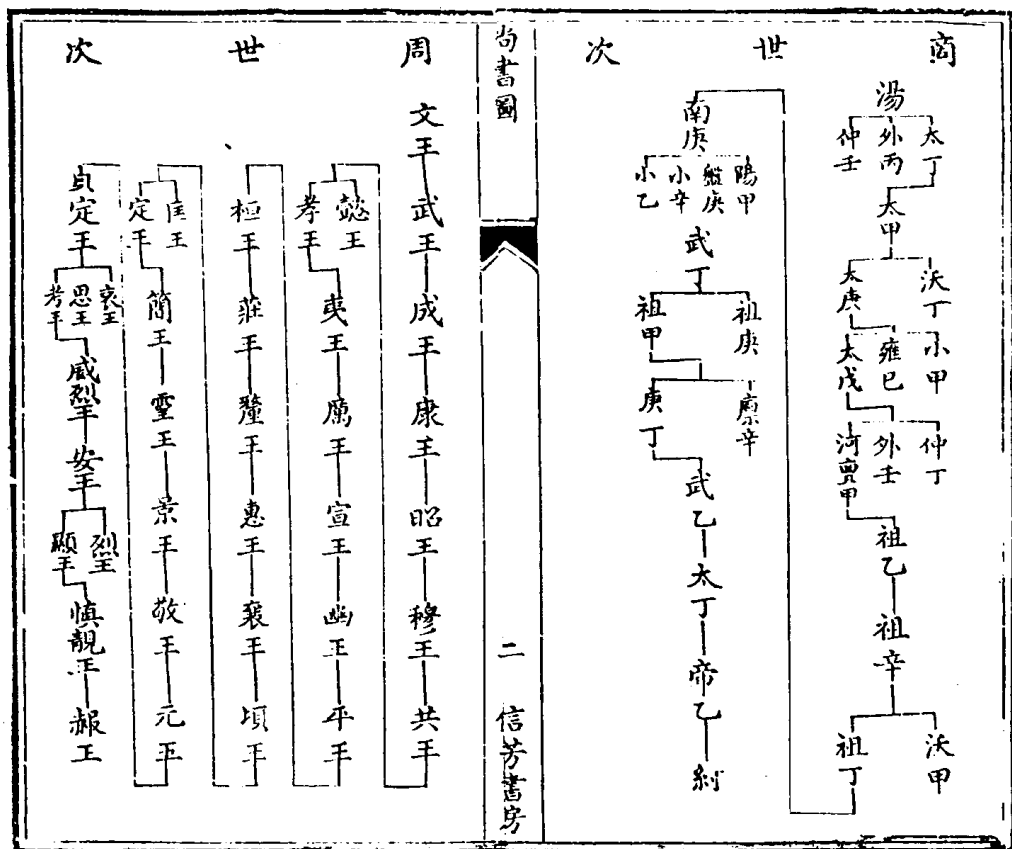 商世次
湯
太丁 外丙 仲壬
太甲
沃丁 太庚
小甲 雍巳 太戊
仲丁 外壬 河亶甲
祖乙
祖辛
沃甲 祖丁
南庚
陽甲 盤庚 小辛 小乙
武丁
祖庚 祖甲
廪辛 庚丁
武乙
太丁
帝乙
紂
尚書圖
二
信芳書房
周世次
文王 武王 成王 康王 昭王 穆王 共王
懿王 孝王 夷王 厲王 宣王 幽王 平王
桓王 莊王 釐王 惠王 襄王 頃王
匡王 定王 簡王 靈王 景王 敬王 元王
貞定王
哀王 思王 考王
威烈王
安王
烈王 顯王
慎靚王
赧王